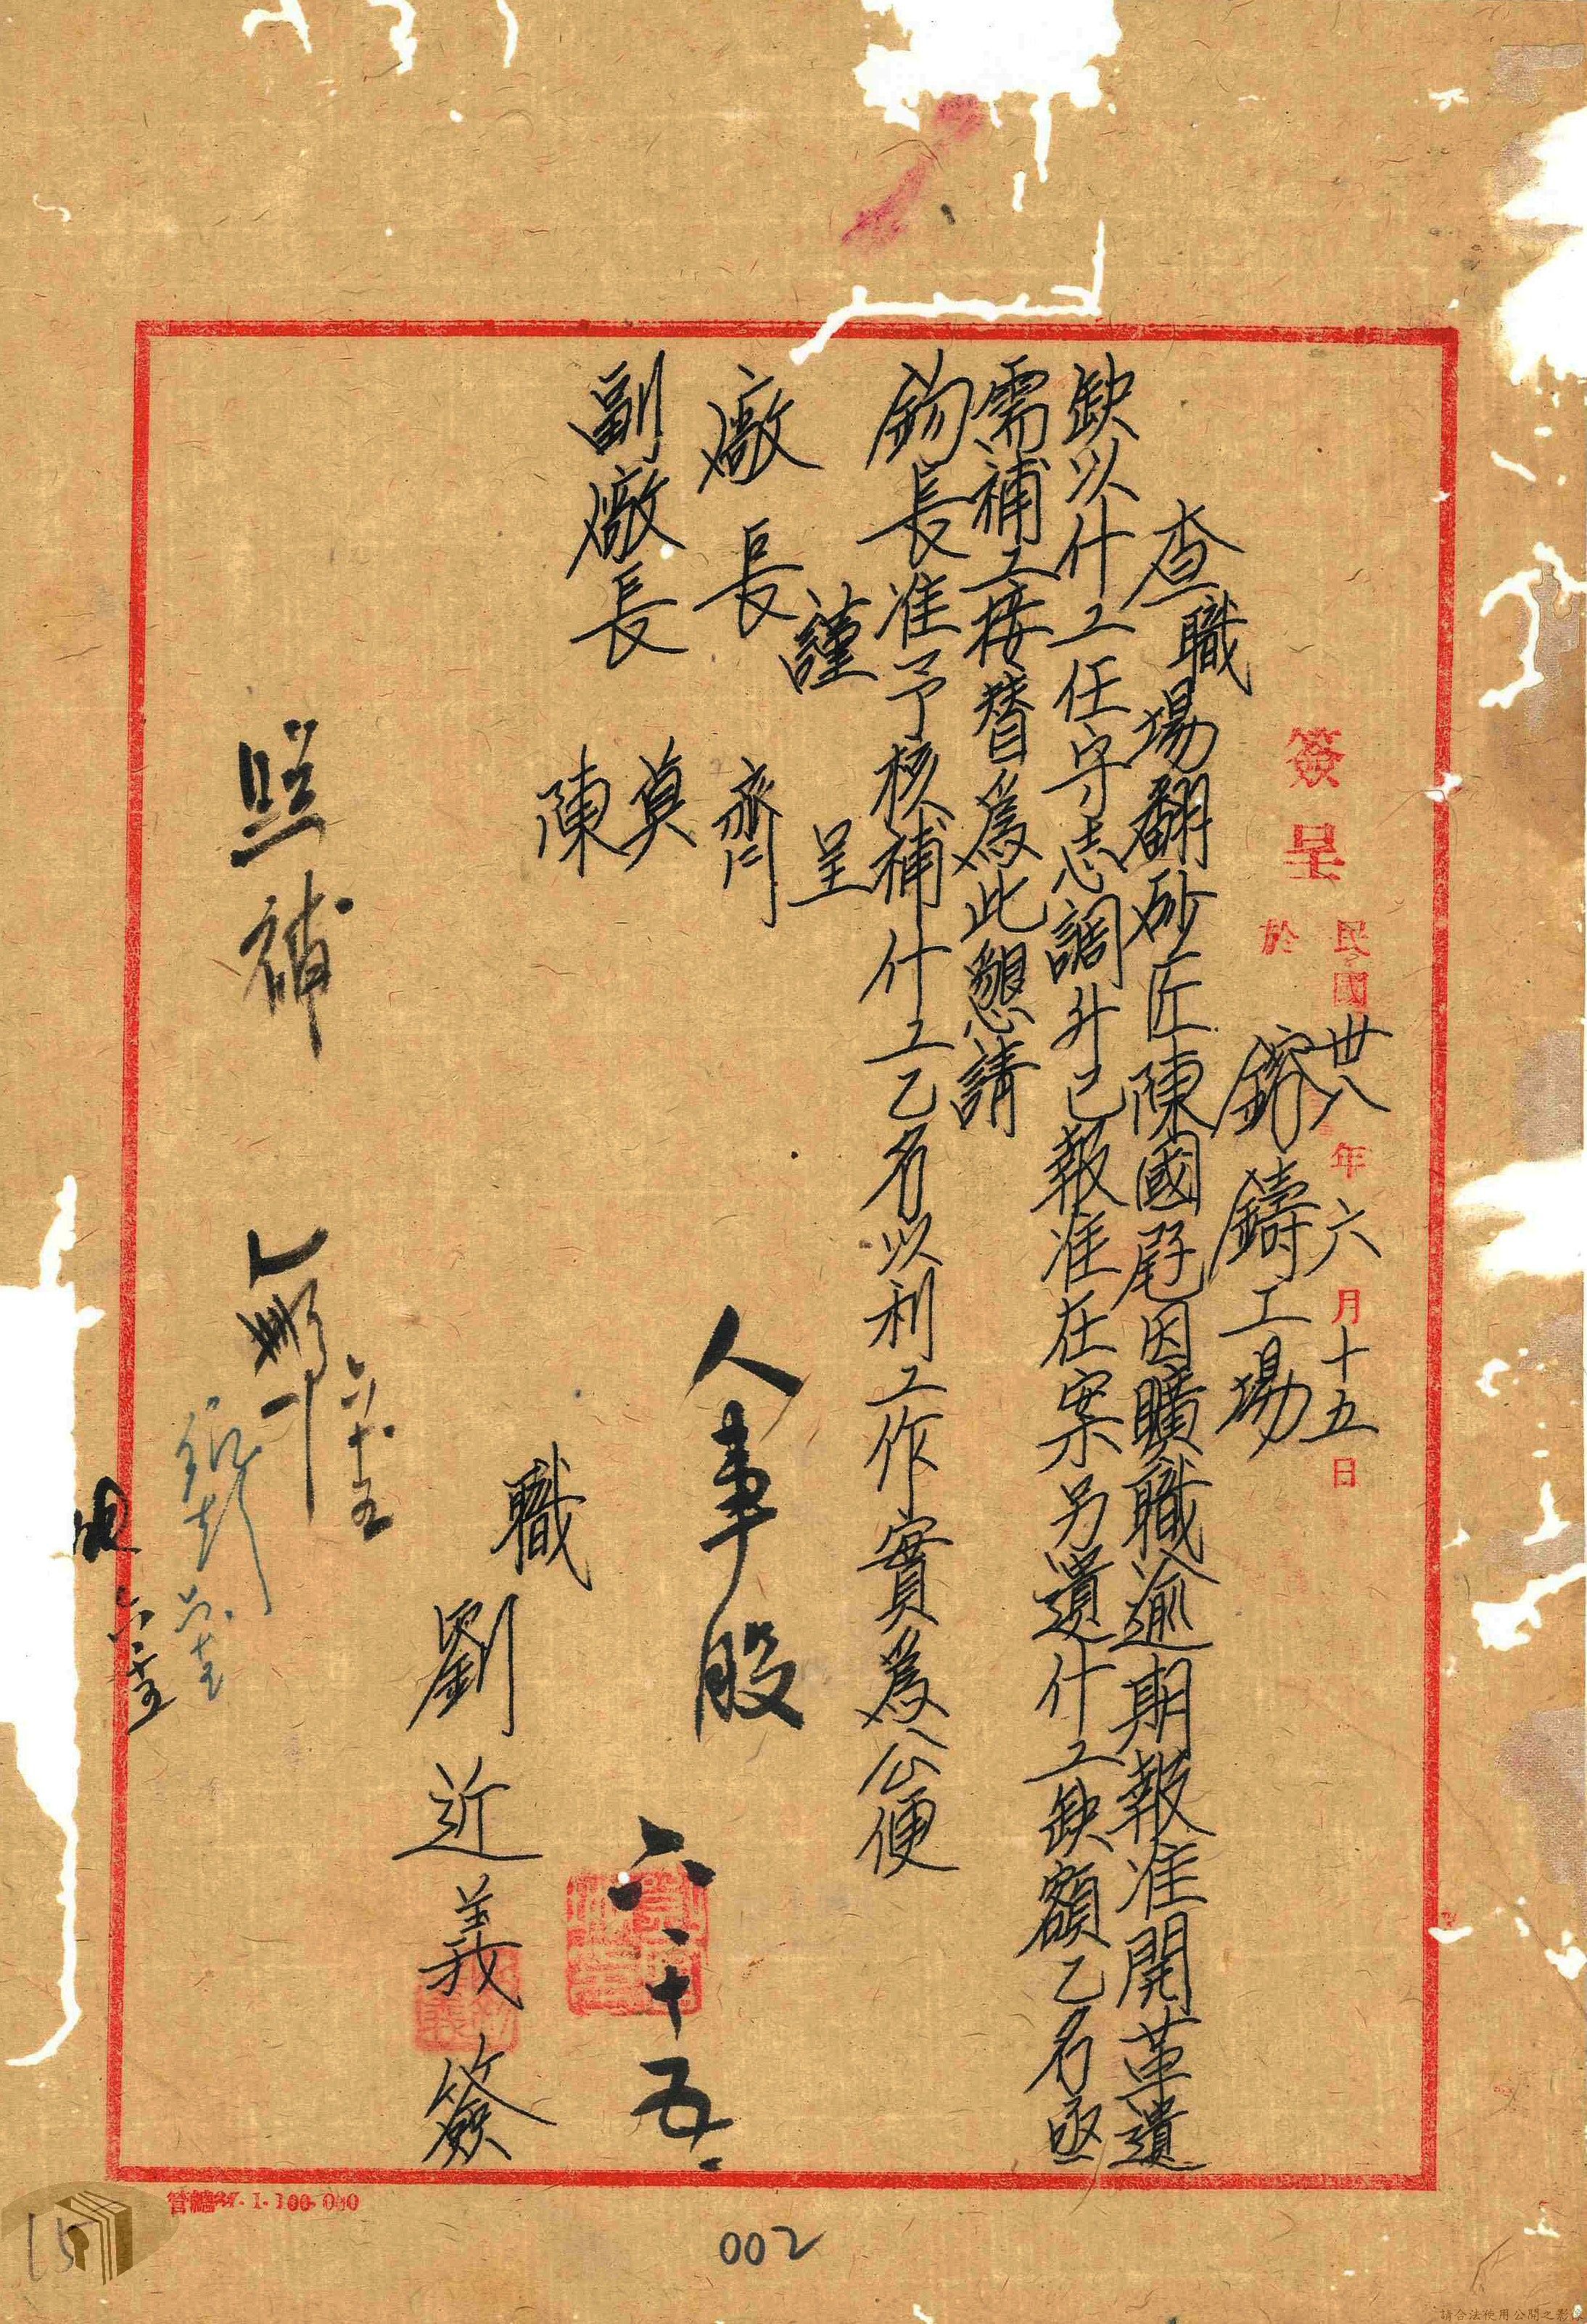 簽呈
民國卅八年六月十五日
於
鎔鑄工場
查職場翻砂匠陳國尉因曠職逾期報准開革遺
缺以什工任守志調升已報准在案另遺什工缺額乙名亟
需補工接替為此懇請
鈞長准予核補什工乙名以利工作實為公便
謹呈
廠長齊
副廠長 莫
陳
人事股 六.十五.
職劉近義簽
照補
六.十五
六.十五
六.十五
37.1.100.000
002
15
請合法使用公開之影像